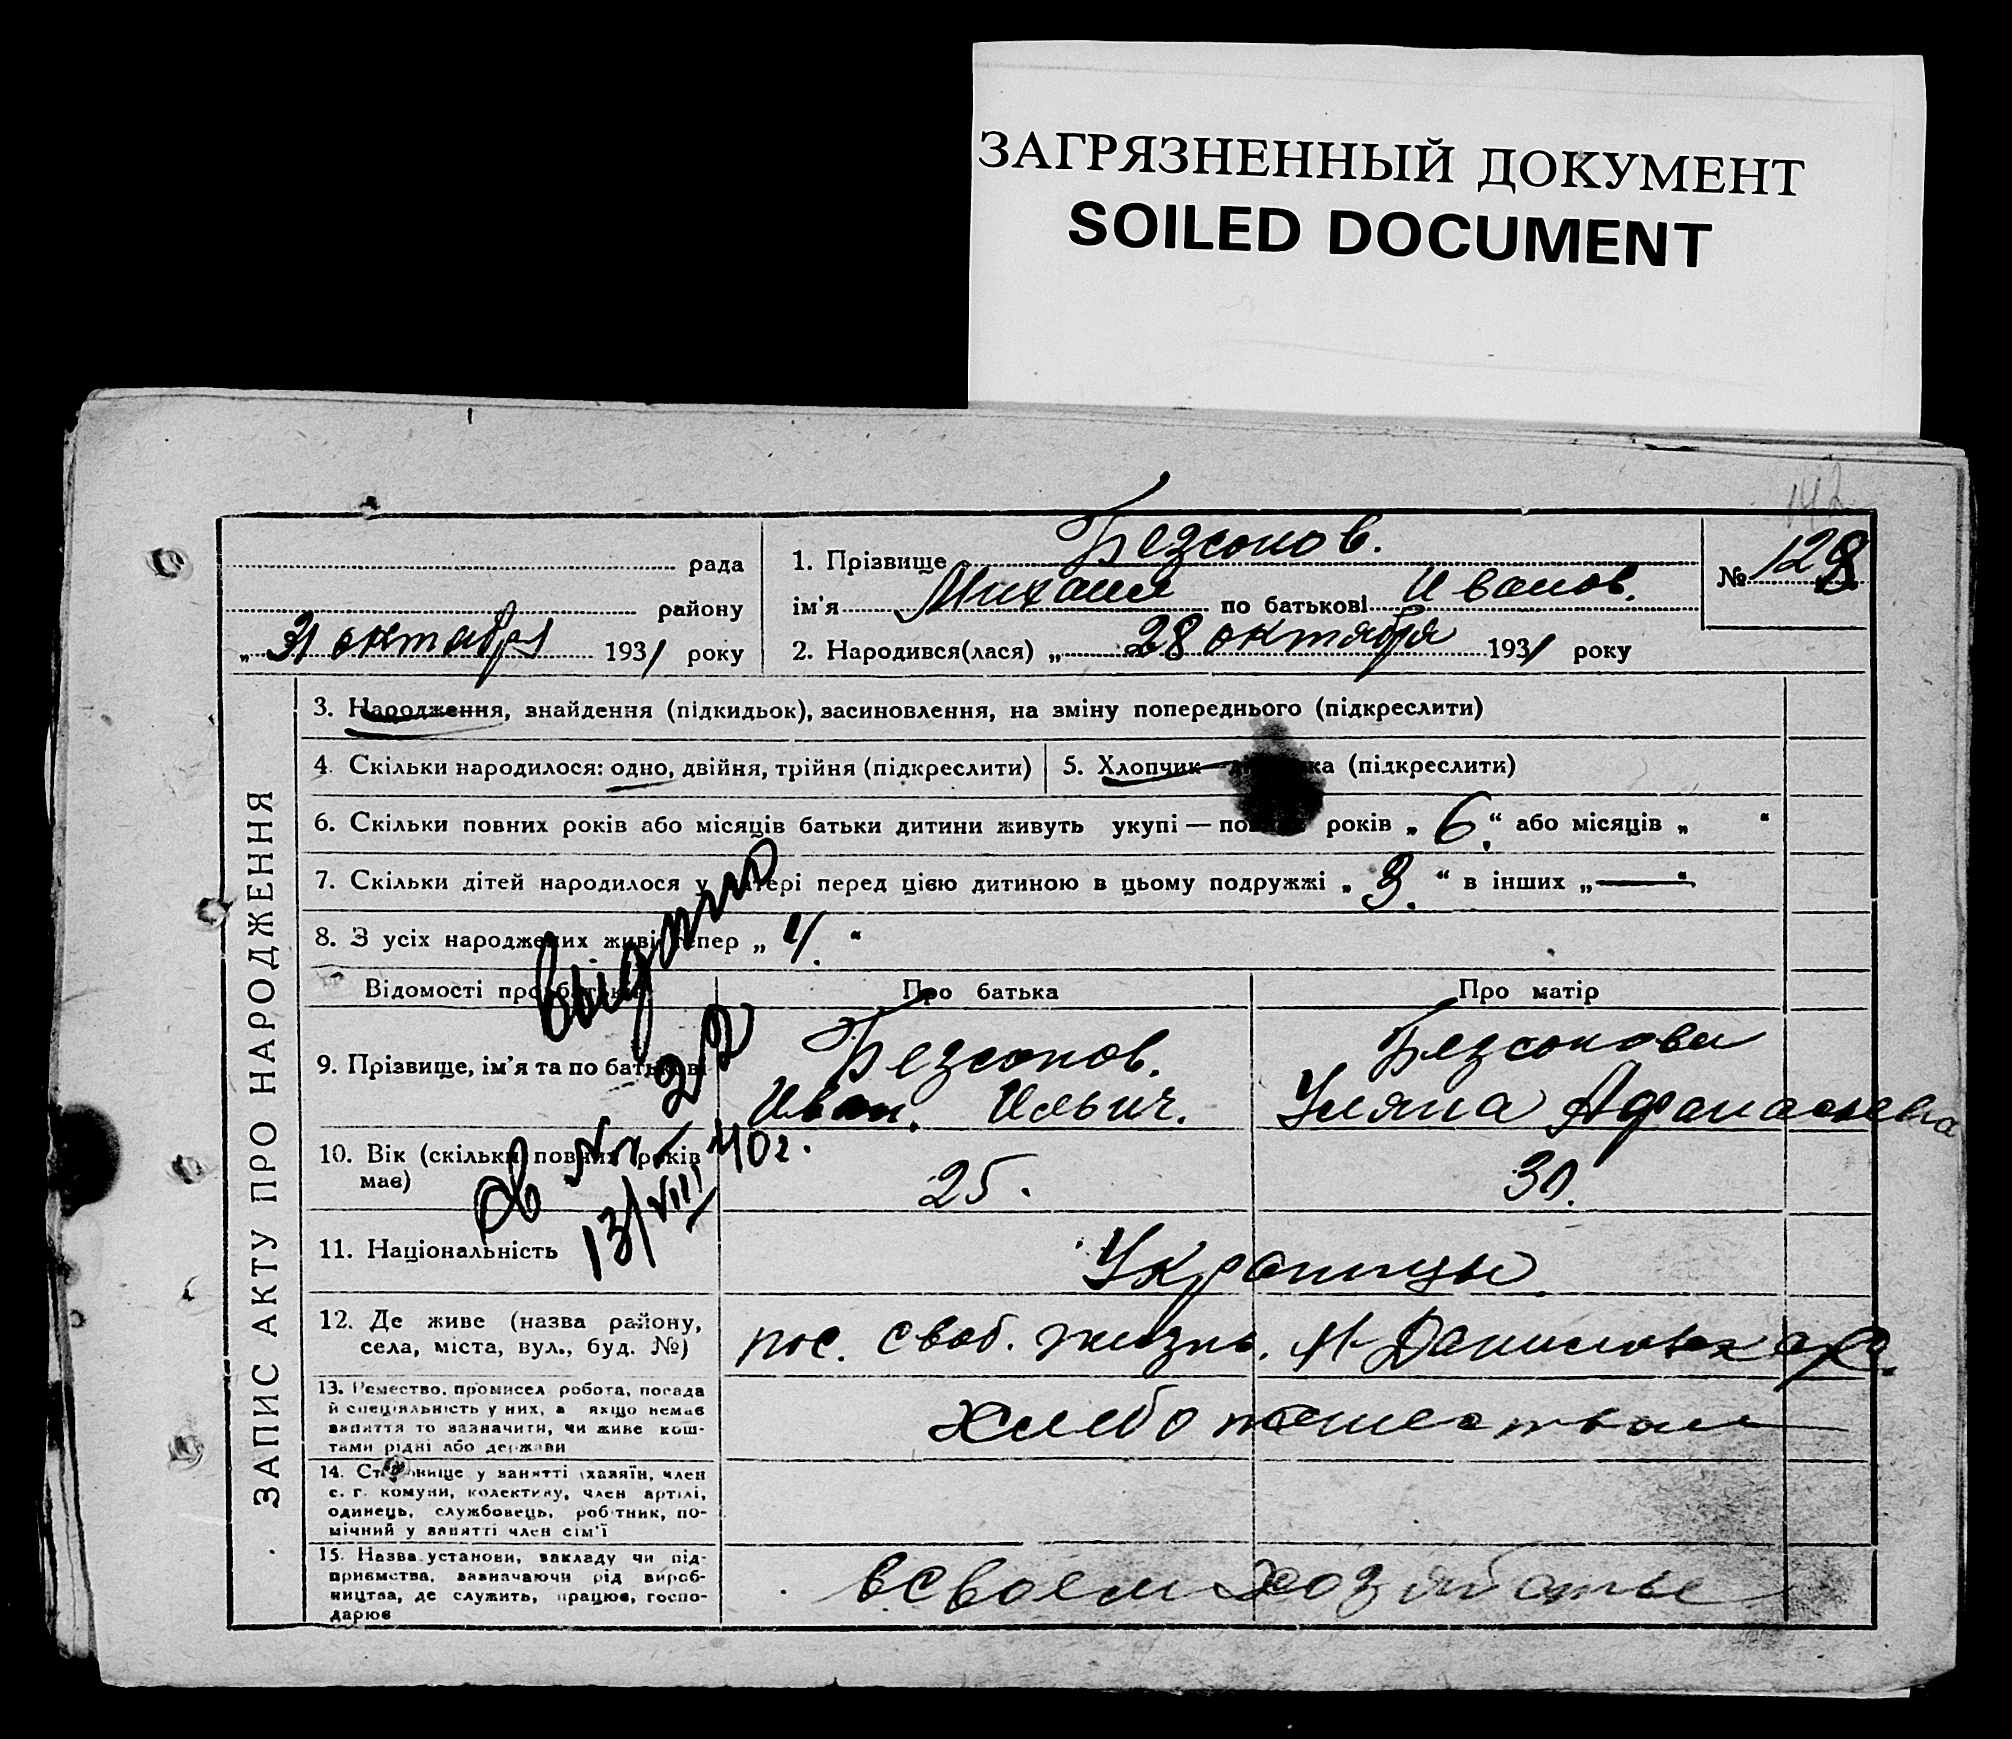 ЗАГРЯЗНЕННЫЙ ДОКУМЕНТ
SOILED DOCUMENT
142
рада
району
„ 31 октября 1931 року
1. Прізвище Безсонов.
ім'я Михаил по батькові Иванов.
2. Народився(лася) „ 28 октября 1931 року
№ 128
ЗАПИС АКТУ ПРО НАРОДЖЕННЯ
3. Народження, знайдення (підкидьок), засиновлення, на зміну попереднього (підкреслити)
4. Скільки народилося: одно, двійня, трійня (підкреслити)
5. Хлопчик (підкреслити)
6. Скільки повних років або місяців батьки дитини живуть укупі — років „ 6. “ або місяців „ “
7. Скільки дітей народилося у матері перед цією дитиною в цьому подружжі „ 3. “ в інших „ — “
8. З усіх народжених живі тепер „ 4. “
Відомості про батьків
Про батька
Про матір
9. Прізвище, ім'я та по батькові
Безсонов.
Иван. Ильич.
Безсонова
Уляна Афанасьевна
10. Вік (скільки повних років
має)
25.
30.
11. Національність
Украинцы
12. Де живе (назва району,
села, міста, вул., буд. №)
пос. своб. жизнь. Н-Даниловка
13. Ремество, промисел робота, посада
й спеціяльність у них, а якщо немає
заняття то зазначити, чи живе кош-
тами рідні або держави
Хлебопашеством
14. Становище у занятті (хазяїн, член
с. г. комуни, колективу, член артілі,
одинець, службовець, робітник, по-
мічний у занятті член сім'ї
15. Назва установи, закладу чи під-
приємства, зазначаючи рід вироб-
ництва, де служить, працює, госпо-
дарює
в своем хозяйстве
Выдано
св № 22
13/VIII 40 г.